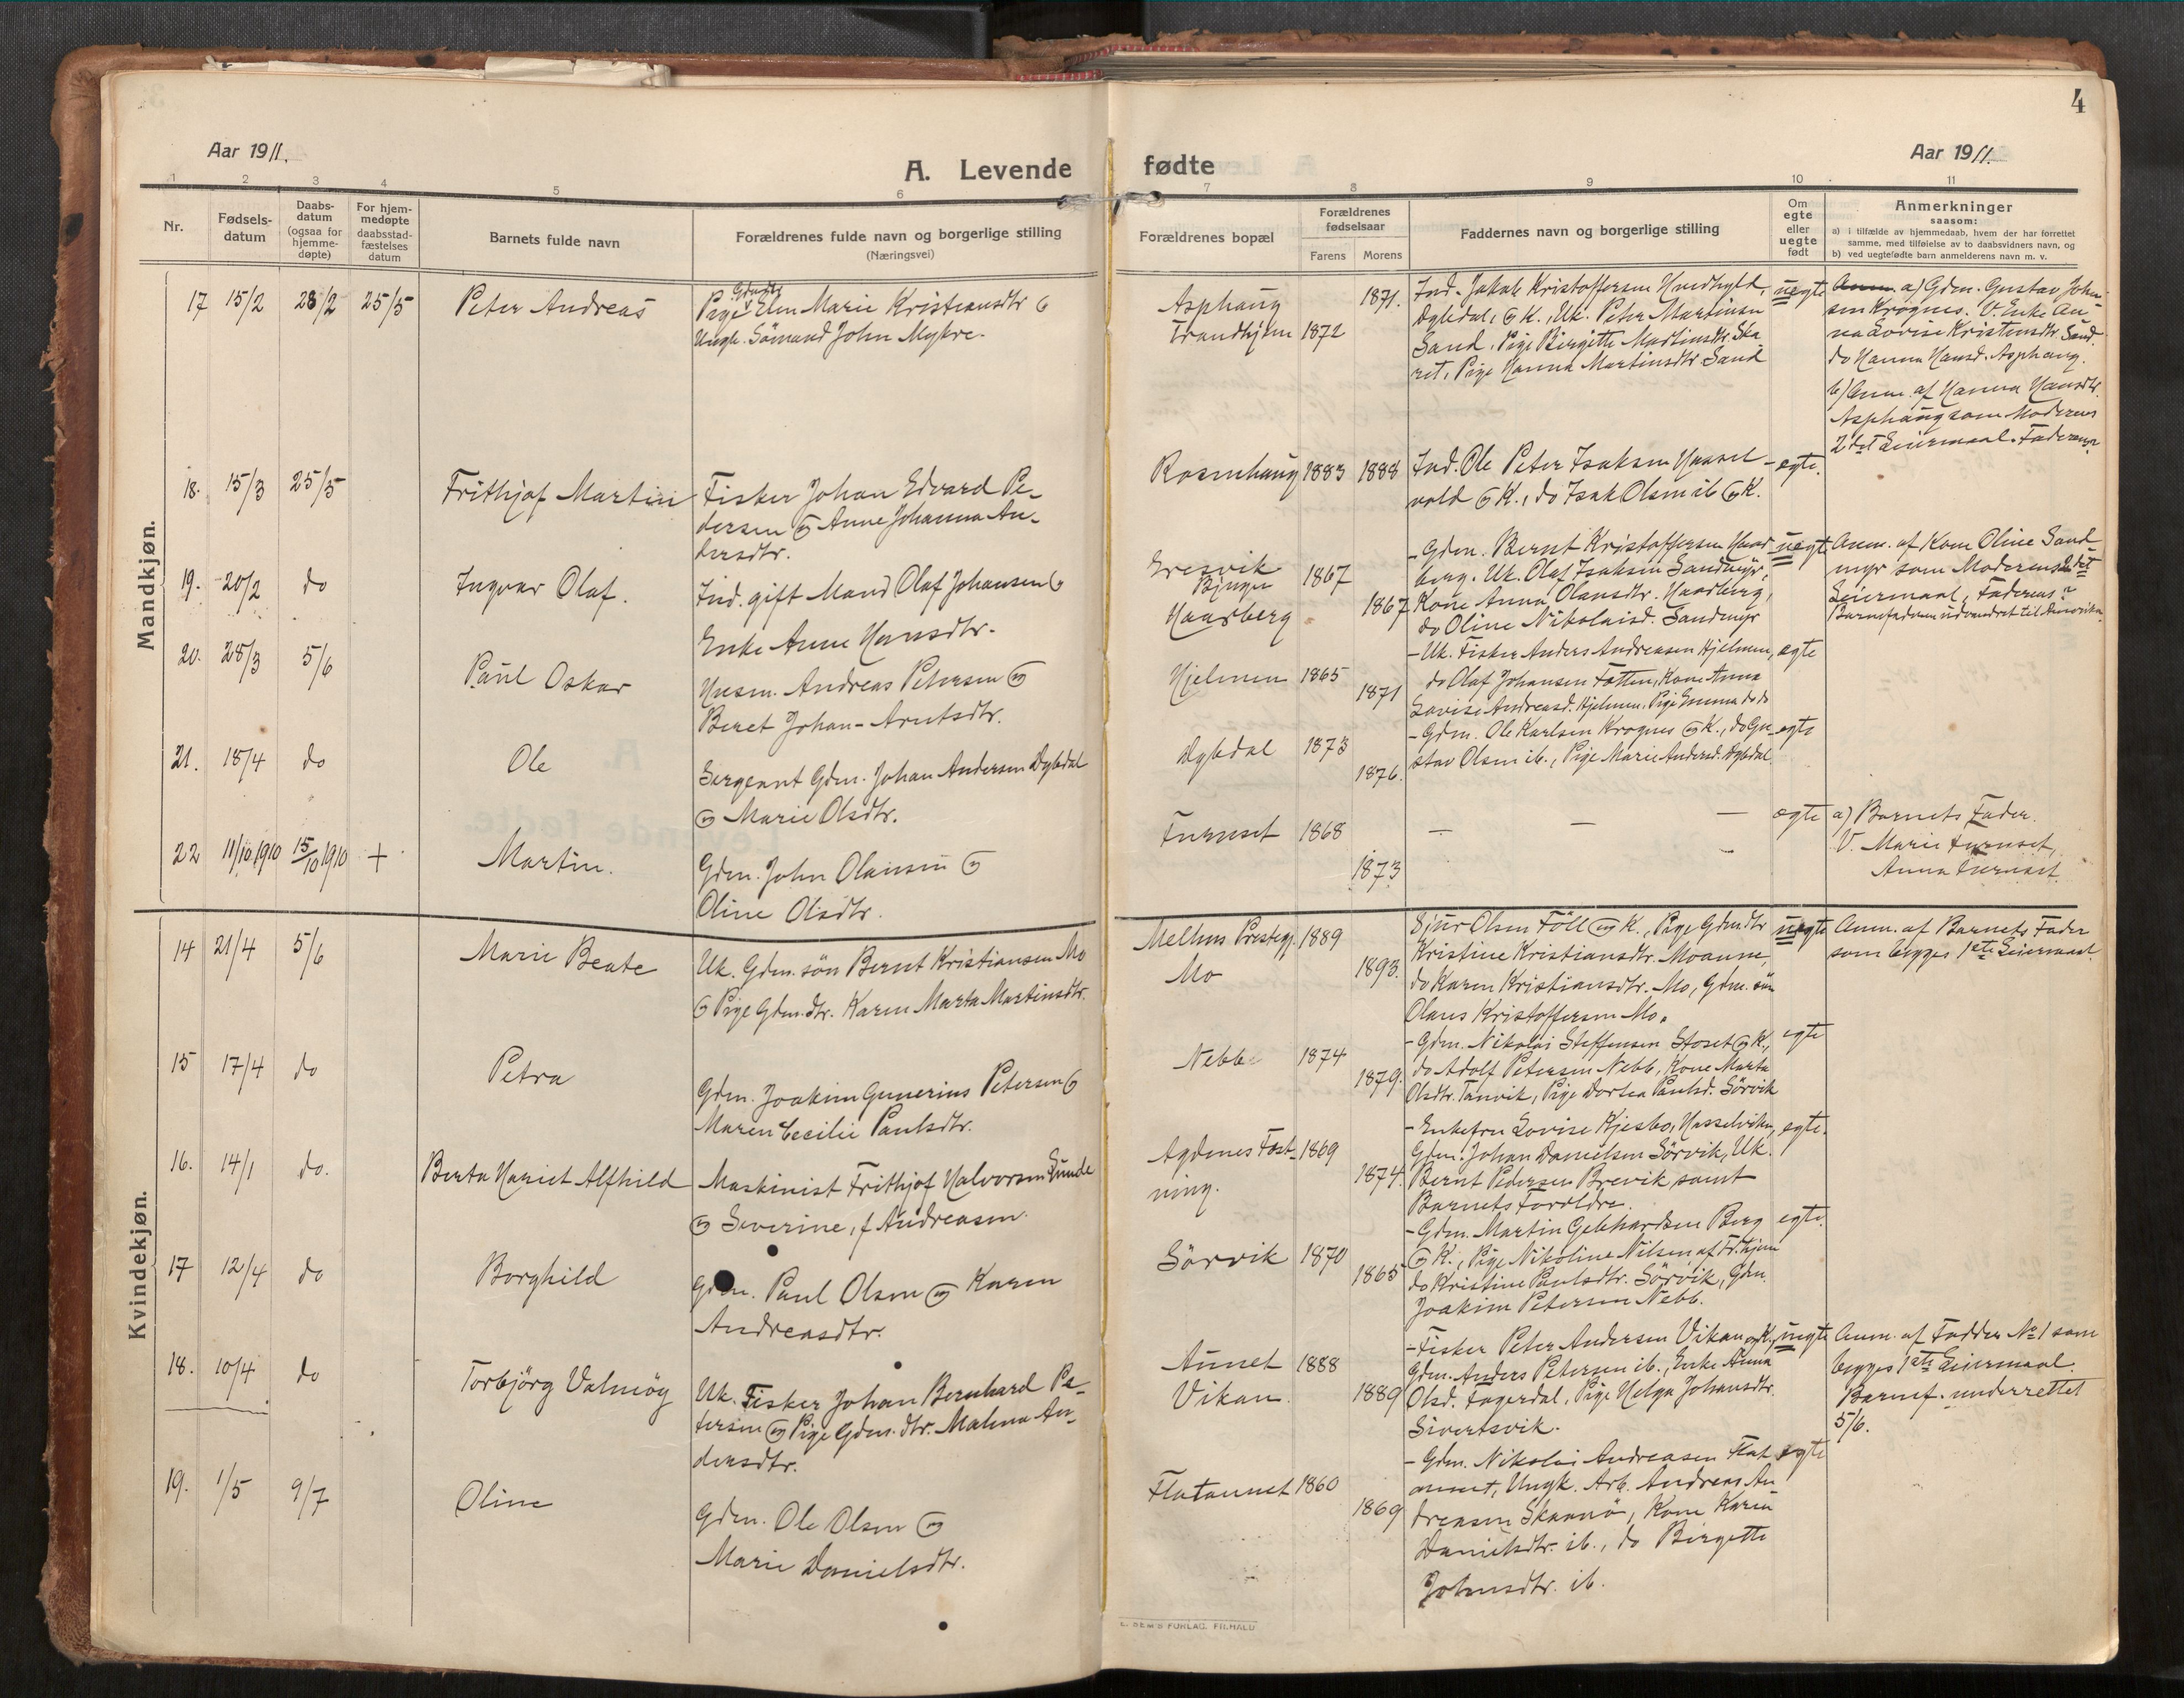 4
Aar 1911.
A. Levende
fødte
Aar 1911.
1 2 3 4 5 6 7 8 9 10 11
Nr.
Fødsels-
datum
Daabs-
datum
(ogsaa for
hjemme-
døpte)
For hjem-
medøpte
daabsstad-
fæstelses
datum
Barnets fulde navn
Forældrenes fulde navn og borgerlige stilling
(Næringsvei)
Forældrenes bopæl
Forældrenes
fødselsaar
Farens Morens
Faddernes navn og borgerlige stilling
Om
egte
eller
uegte
født
Anmerkninger
saasom:
a) i tilfælde av hjemmedaab, hvem der har forrettet
samme, med tilføielse av to daabsvidners navn, og
b) ved uegtefødte barn anmelderens navn m. v.
Mandkjøn.
17 15/2 28/2 25/5 Peter Andreas
Pige Elen Marie Kristiansdtr og
Ungk. Sömand John Mykre.
Asphaug 1871.
Trondhjem 1872
Ind. Jakob Kristoffersen
Dybdal, og K., Uk. Peter Martinsen
Sand, Pige Birgitte Martinsdtr. Ska
ret, Pige Hanna Martinsdtr Sand
uegte
a) Gdm. Gustav John
sen Krognes. V. Enke An
na Lovise Kristensdtr. Sand.
do Hanna Hansd. Asphaug.
b) Anm. af Hanna Hansdtr.
Asphaug som Moderens
2det Leiermaal. Faderens?
18. 15/3 25/5 Frithjof Martin
Fisker Johan Edvard Pe-
dersen og Anne Johanna An-
dersdtr.
Rosenhaug 1883 1888
Ind. Ole Peter Isaksen Hassel-
vold og K., do Isak Olsen ib og K.
egte.
19. 20/2 do Ingvar Olaf.
Ind. gift Mand Olaf Johansen og
Enke Anne Hansdtr.
Eresvik
Bjugn 1867
Haarberg 1867
- Gdm. Bernt Kristoffersen Haar
berg. Uk. Olaf Isaksen Sandmyr,
Kone Anna Olausdtr. Haarberg,
do Oline Nikolaisd. Sandmyr
uegte
Anm. af Kone Oline Sand
myr som Moderens 2det
Leiermaal, Faderens?
Barnefaderen udvandret til Amerika.
20. 28/3 5/6 Paul Oskar
Husm. Andreas Petersen og
Beret Johan-Arntsdtr.
Hjelmen 1865 1871
- Uk. Fisker Anders Andreasen Hjelmen,
do Olaf Johansen Fatten, Kone Anna
Lovise Andreasd. Hjelmen. Pige Emma do do
egte
21. 18/4 do Ole
Sergeant Gdm. Johan Andersen Dybdal
og Marie Olsdtr.
Dybdal 1873 1876.
- Gdm. Ole Karlsen Krognes og K., do Gu-
stav Olsen ib., Pige Marie Andersd. Dybdal.
egte
22 11/10 1910 15/10 1910 + Martin.
Gdm. John Olausen og
Oline Olsdtr.
Furuset 1868 1873
— — —
egte
a) Barnets Fader.
V. Marie Furuset,
Anna Furuset
Kvindekjøn.
14 21/4 5/6 Marie Beate
Uk. Gdm. sön Bernt Kristiansen Mo
og Pige Gdm. dtr. Karen Marta Martinsdtr.
Melhus Prestegj. 1889
Mo 1893.
Sjur Olsen Föll og K., Pige Gdm.dtr
Kristine Kristiansdtr. Moanne,
do Karen Kristiansdtr. Mo, Gdm. sön
Olaus Kristoffersen Mo.
uegte
Anm. af Barnets Fader
som begges 1ste Leiermaal.
15 17/4 do Petra
Gdm. Joakim Gunerius Petersen og
Maren Cecilie Paulsdtr.
Nebb 1874 1879.
- Gdm. Nikolai Steffensen Stoset og K.,
do Adolf Petersen Nebb, Kone Marta
Olsdtr. Tanvik, Pige Dortea Paulsd. Sörvik
egte
16. 14/1 do. Berta Hariet Alfhild
Maskinist Frithjof Halvorsen Lunde
og Severine, f. Andreasen.
Agdenes Fæst-
ning. 1869 1874.
- Enkefru Lovise Kjesbo, Hasselviken,
Gdm. Johan Danielsen Sörvik, Uk.
Bernt Pedersen Brevik samt
Barnets Foreldre.
egte.
17 12/4 do Borghild
Gdm. Paul Olsen og Karen
Andreasdtr.
Sörvik 1870 1865
- Gdm. Martin Gebhardsen Berg
og K., Pige Nikoline Nilsen af Tr.hjem
do Kristine Paulsdtr. Sörvik, Gdm.
Joakim Petersen Nebb.
egte.
18. 10/4 do Torbjörg Valmöy
Uk. Fisker Johan Bernhard Pe-
tersen og Pige Gdm. dtr. Malena An-
dersdtr.
Aunet 1888
Vikan. 1889
- Fisker Peter Andersen Vikan og K.,
Gdm. Anders Petersen ib., Enke Anna
Olsd. Fagerdal, Pige Helga Johansdtr.
Sivertsvik.
uegte
Anm. af Fadder No 1 som
begges 1ste Leiermaal.
Barnef. underrettet
5/6.
19. 1/5 9/7 Oline
Gdm. Ole Olsen og
Marie Danielsdtr.
Flataunet 1860 1869
- Gdm. Nikolai Andreasen Flat
aunet, Ungk. Arb. Andreas An-
dreasen Skannö, Kone Karen
Danielsdtr. ib., do Birgitte
Johnsdtr. ib.
egte